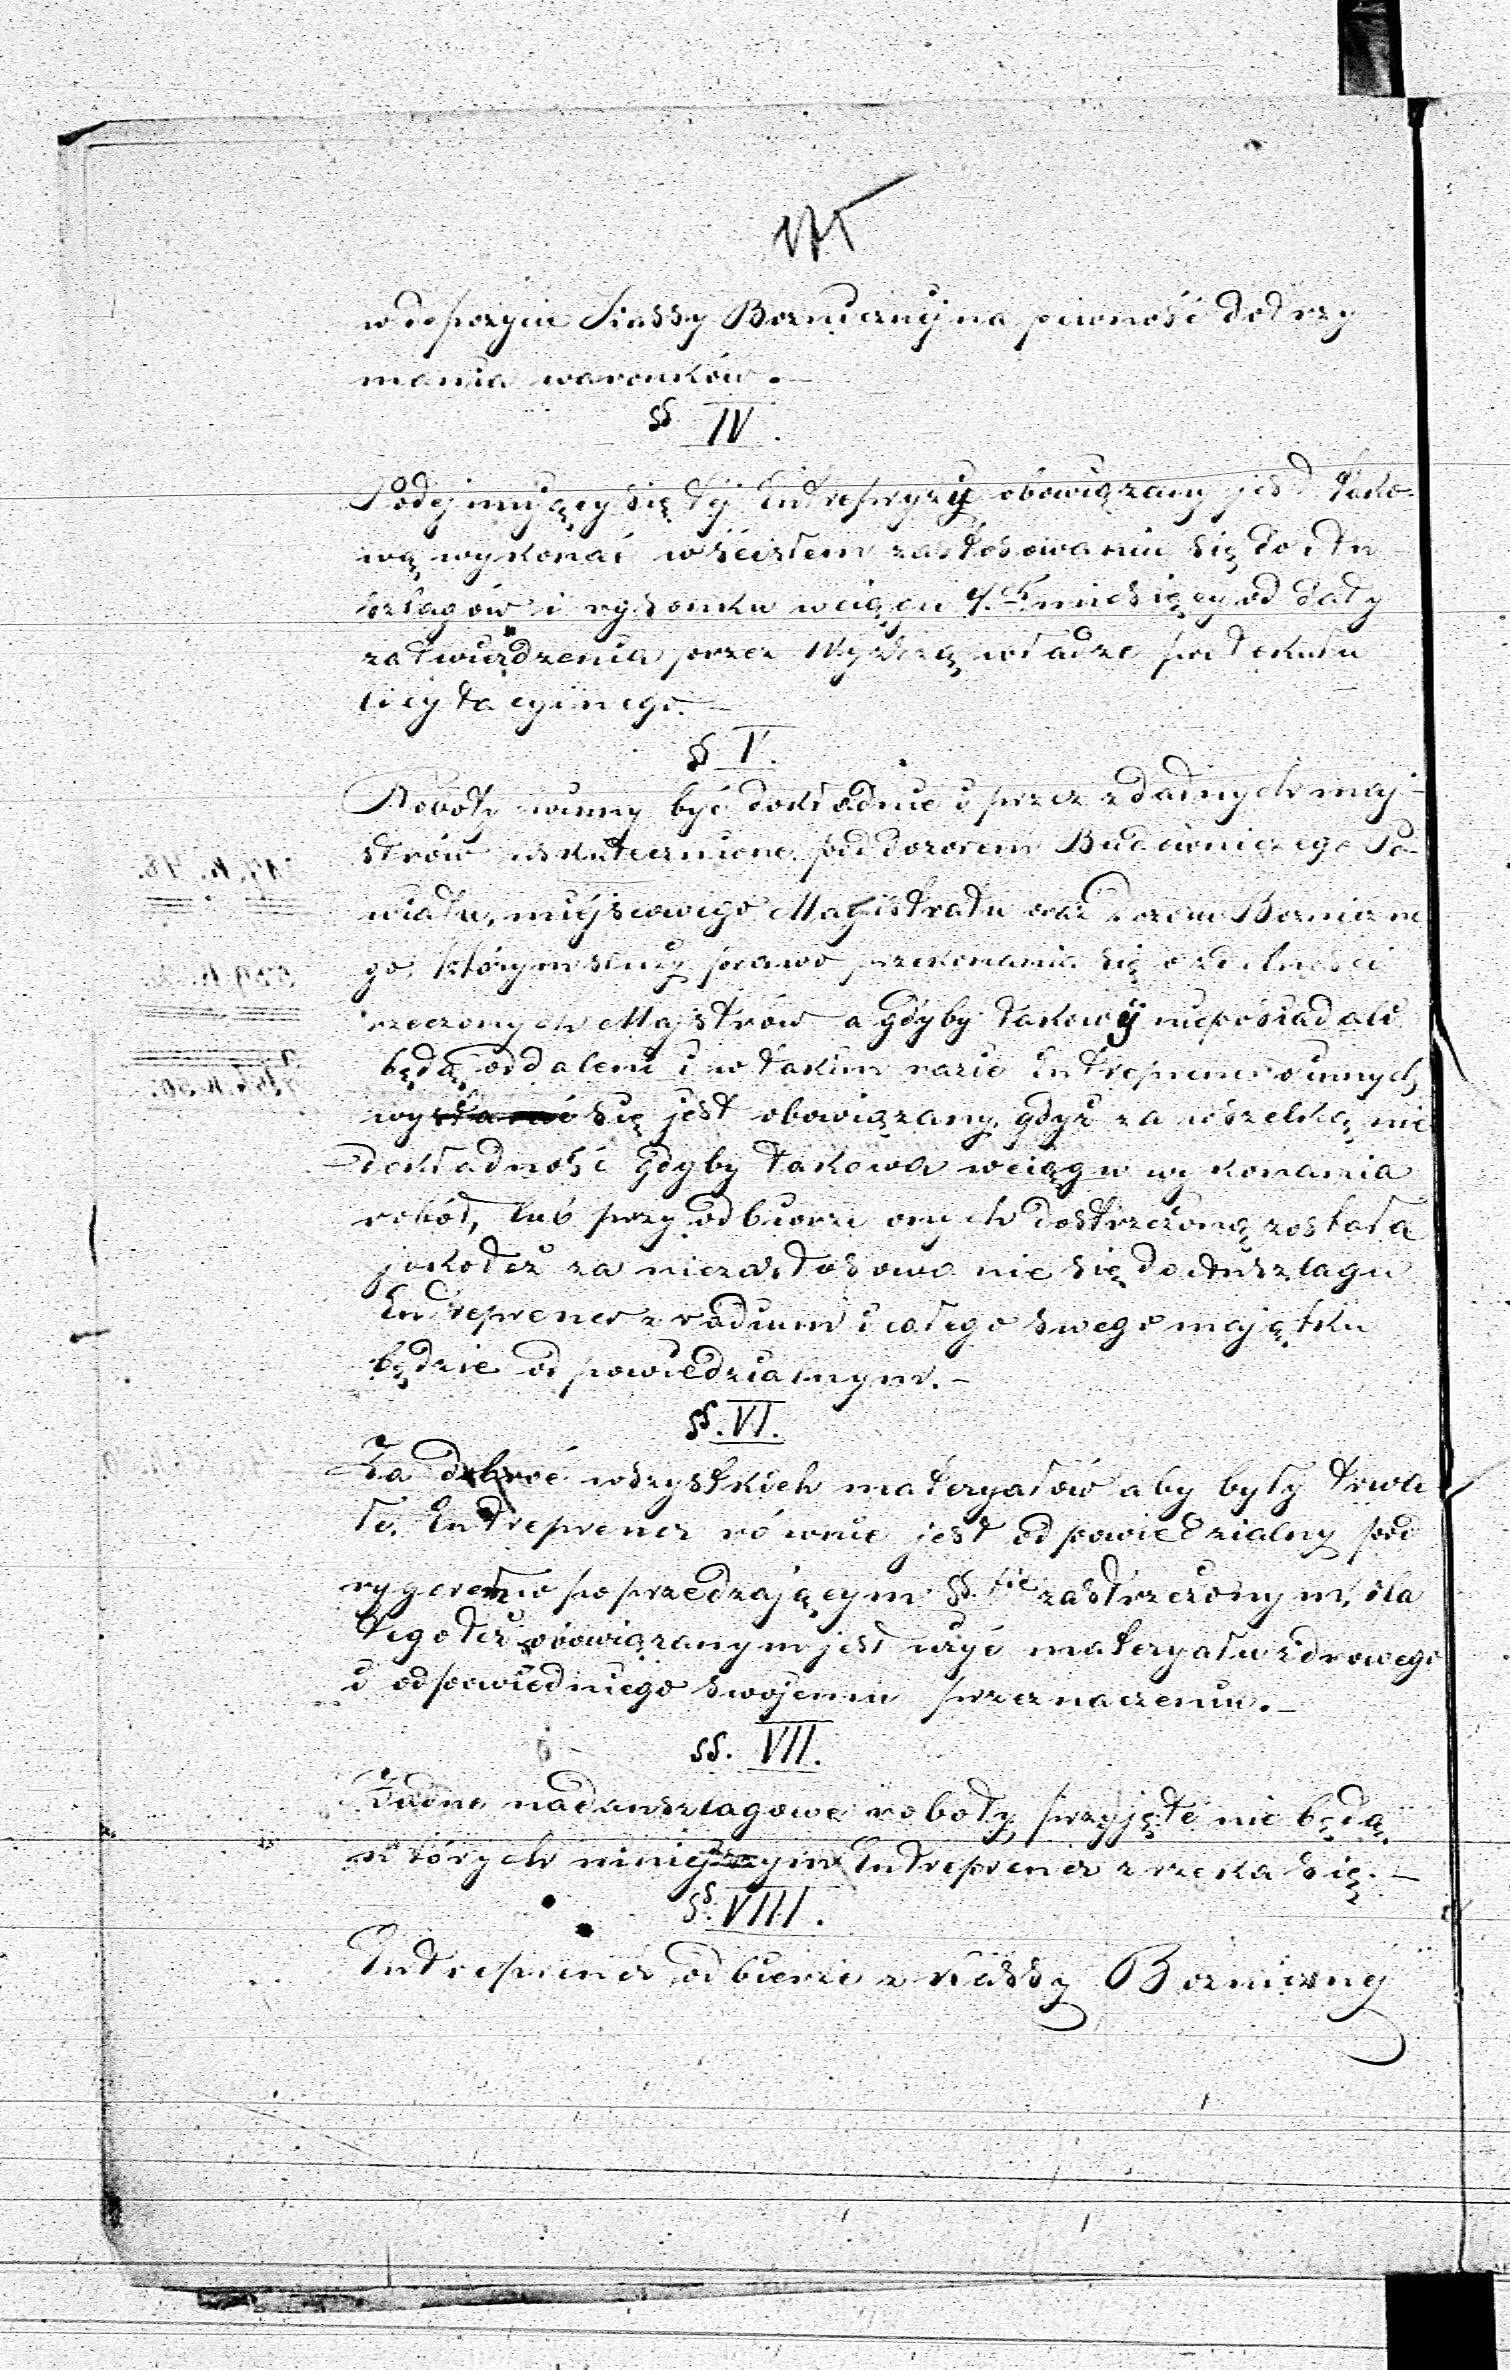 175
w depozycie Kassy Bozniczny na pewność dotrzy
mania warunków. –
§§ IV.
Podejmujący się téj Entrepryzy obowiązany jest tako-
wą wykonać w ścisłem zastosowaniu się do An-
szlagów i rysunku wciągu 4.ch miesięcy od daty
zatwierdzenia przez Wyższą władze protokułu
licytacyinego. –
§ V.
Roboty winny być dokładnie i przez zdatnych maj-
strów uskutecznione pod dozorem Budowniczego Po-
wiatu, miéjscowego Magistratu oraz Dozoru Bozniczne
go, którym służy prawo przekonania się o zdolności
rzeczonych Majstrów a gdyby takowéj nieposiadali
będą oddaleni i w takim razie Entreprener o innych
wystarać się jest obowiązany, gdyż za wszelką nie
dokładność gdyby takowa wciągu wykonania
robót, lub przy odbiorze onych dostrzeżoną została
jakoteż za niezastosowanie się do Anszlagu
Entreprener z vadium i całego swego majątku
będzie odpowiedzialnym. –
§§. VI.
Za dobroć wszystkich materyałów aby były trwa
łe, Entreprener równie jest odpowiedzialny pod
rygorem w poprzedzającym §§ fie zastrzeżonym, dla
tego też obowiązanym jest użyć materyału zdrowego
i odpowiedniego swojemu przeznaczeniu. –
§§. VII.
Żadne nadanszlagowe roboty przyjęte nie będą
których niniejszym Entreprener zrzeka się. –
§§. VIII.
Entreprener odbierze z Kassy Boznicznéj